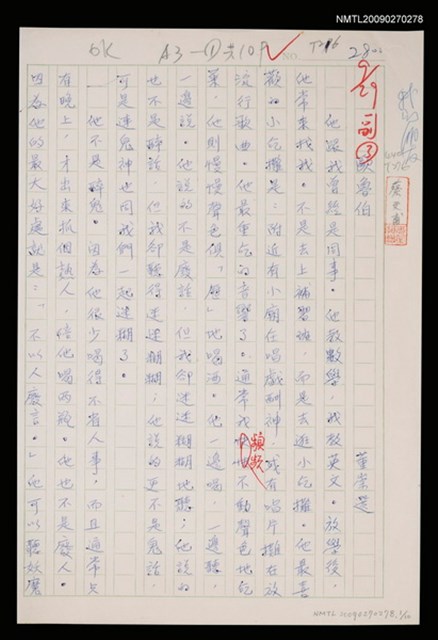 NMTL20090270278
OK
A3-①共10P
9/29 副③
歐魯伯
董崇選
他跟我曾經是同事。他教數學，我教英文。放學後，
他常來找我。不是去上補習班，而是去逛小吃攤。他最喜
歡的小吃攤是：附近有小廟在唱戲酬神，或有唱片攤在放
流行歌曲。他最重吃的音響了。通常我頻頻不動聲色地吃
菜，他則慢慢聲色俱「歷」地喝酒。他一邊喝，一邊聽，
一邊說。他說的不是廢話，但我卻迷迷糊糊地聽；他說的
也不是醉話，但我卻聽得迷迷糊糊；他說的更不是鬼話，
可是連鬼神也同我們一起迷糊了。
他不是醉鬼。因為他很少喝得不省人事，而且通常只
有晚上，才出來抓個熟人，陪他喝兩瓶。他也不是廢人。
因為他的最大好處就是：「不以人廢言。」他可以聽妖魔
NMTL20090270278. 1/10